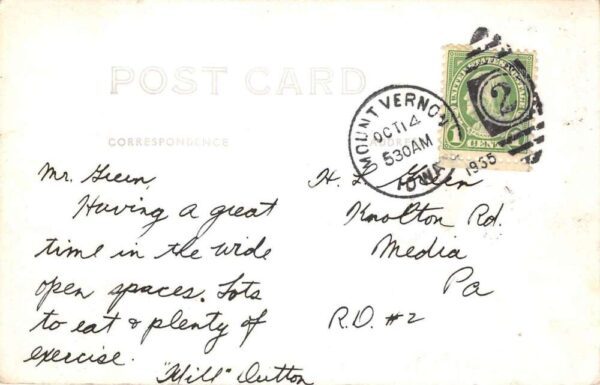 POST CARD
CORRESPONDENCE
ADDRESS
MOUNT VERNON
OCT 14
530AM
1935
IOWA
UNITED STATES POSTAGE
1 CENT
2
Mr. Green,
Having a great
time in the wide
open spaces. Lots
to eat & plenty of
exercise.
"Mill" Dutton
H. L. Green
Knolton Rd.
Media
Pa
R.D. #2